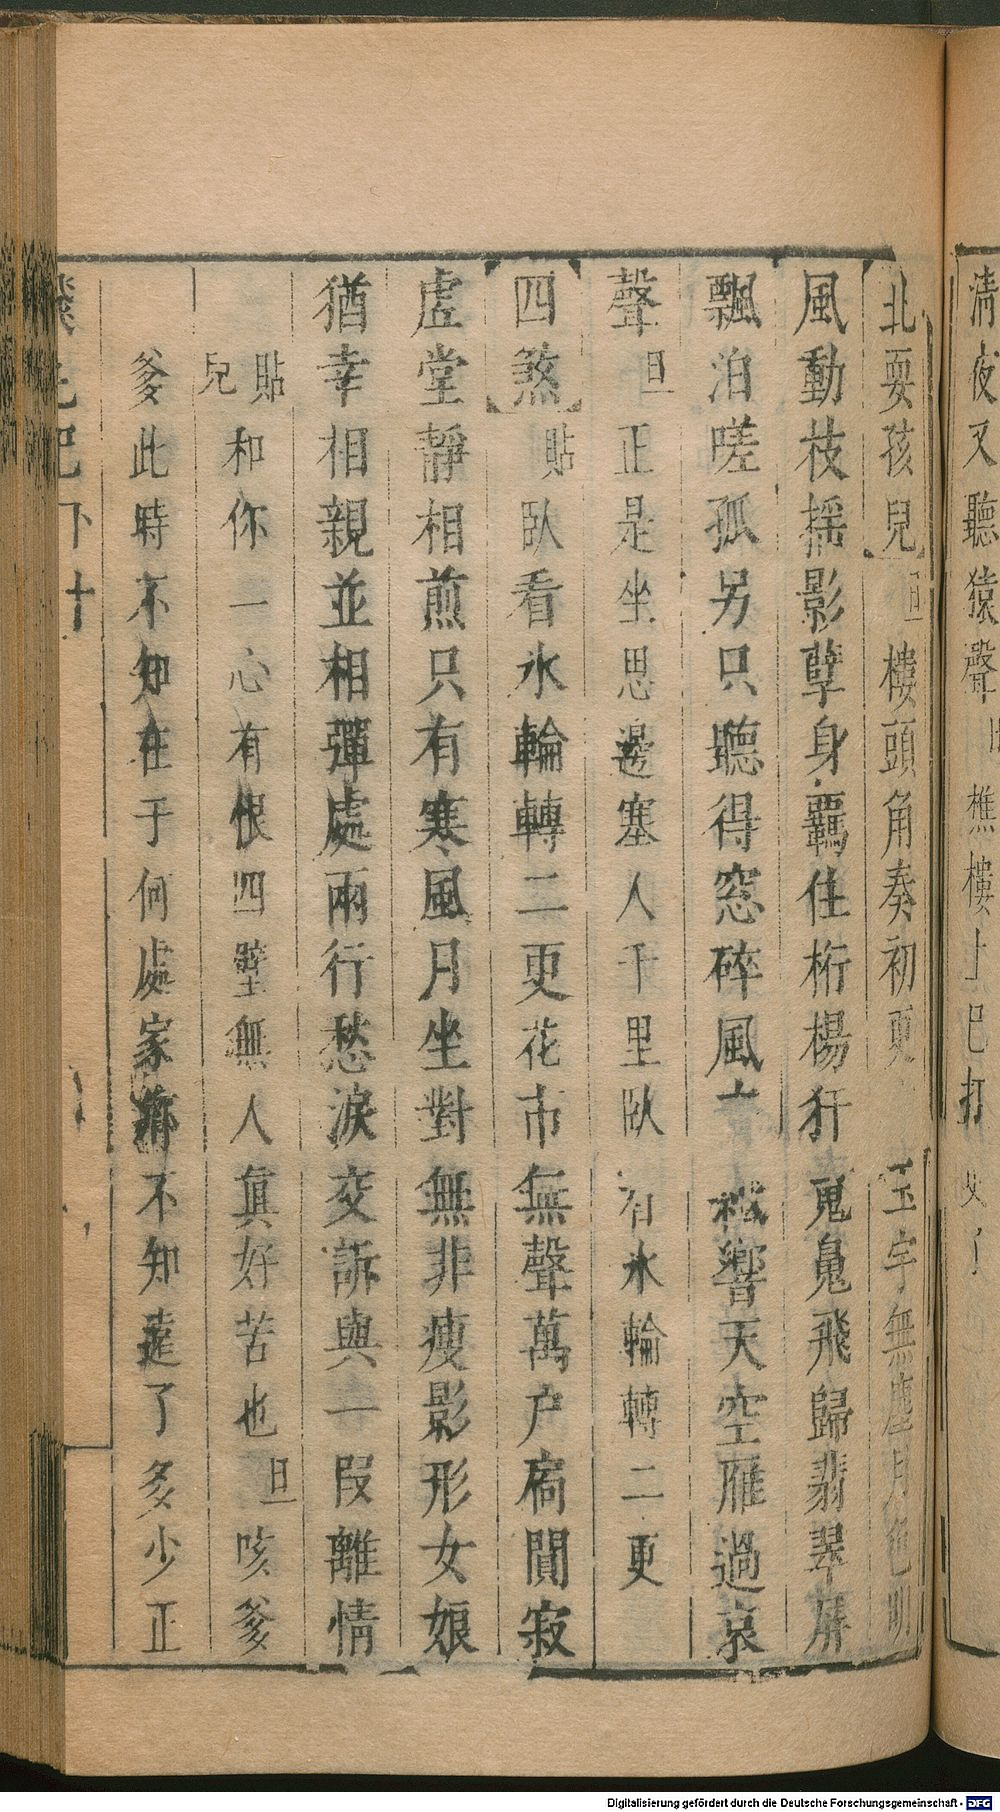 清夜又聽猿聲 樵樓上已打
北耍孩兒 旦 樓頭角奏初更 玉宇無塵月色明
風動枝搖影孽身羈住桁楊犴 魂飛歸翡翠屏
飄泊嗟孤另只聽得窓碎風 響天空雁過哀
聲 旦 正是坐思邊塞人千里臥看氷輪轉二更
四煞 貼 臥看氷輪轉二更花市無聲萬户扃閴寂
虛堂靜相煎只有寒風月坐對無非瘦影形女娘
猶幸相親並相彈處兩行愁淚交訴與一叚離情
貼 和你一心有恨四壁無人眞好苦也 旦 咳爹
兒
爹此時不知在于何處家 不知遠了多少正
巴下 十
Digitalisierung gefördert durch die Deutsche Forschungsgemeinschaft - DFG